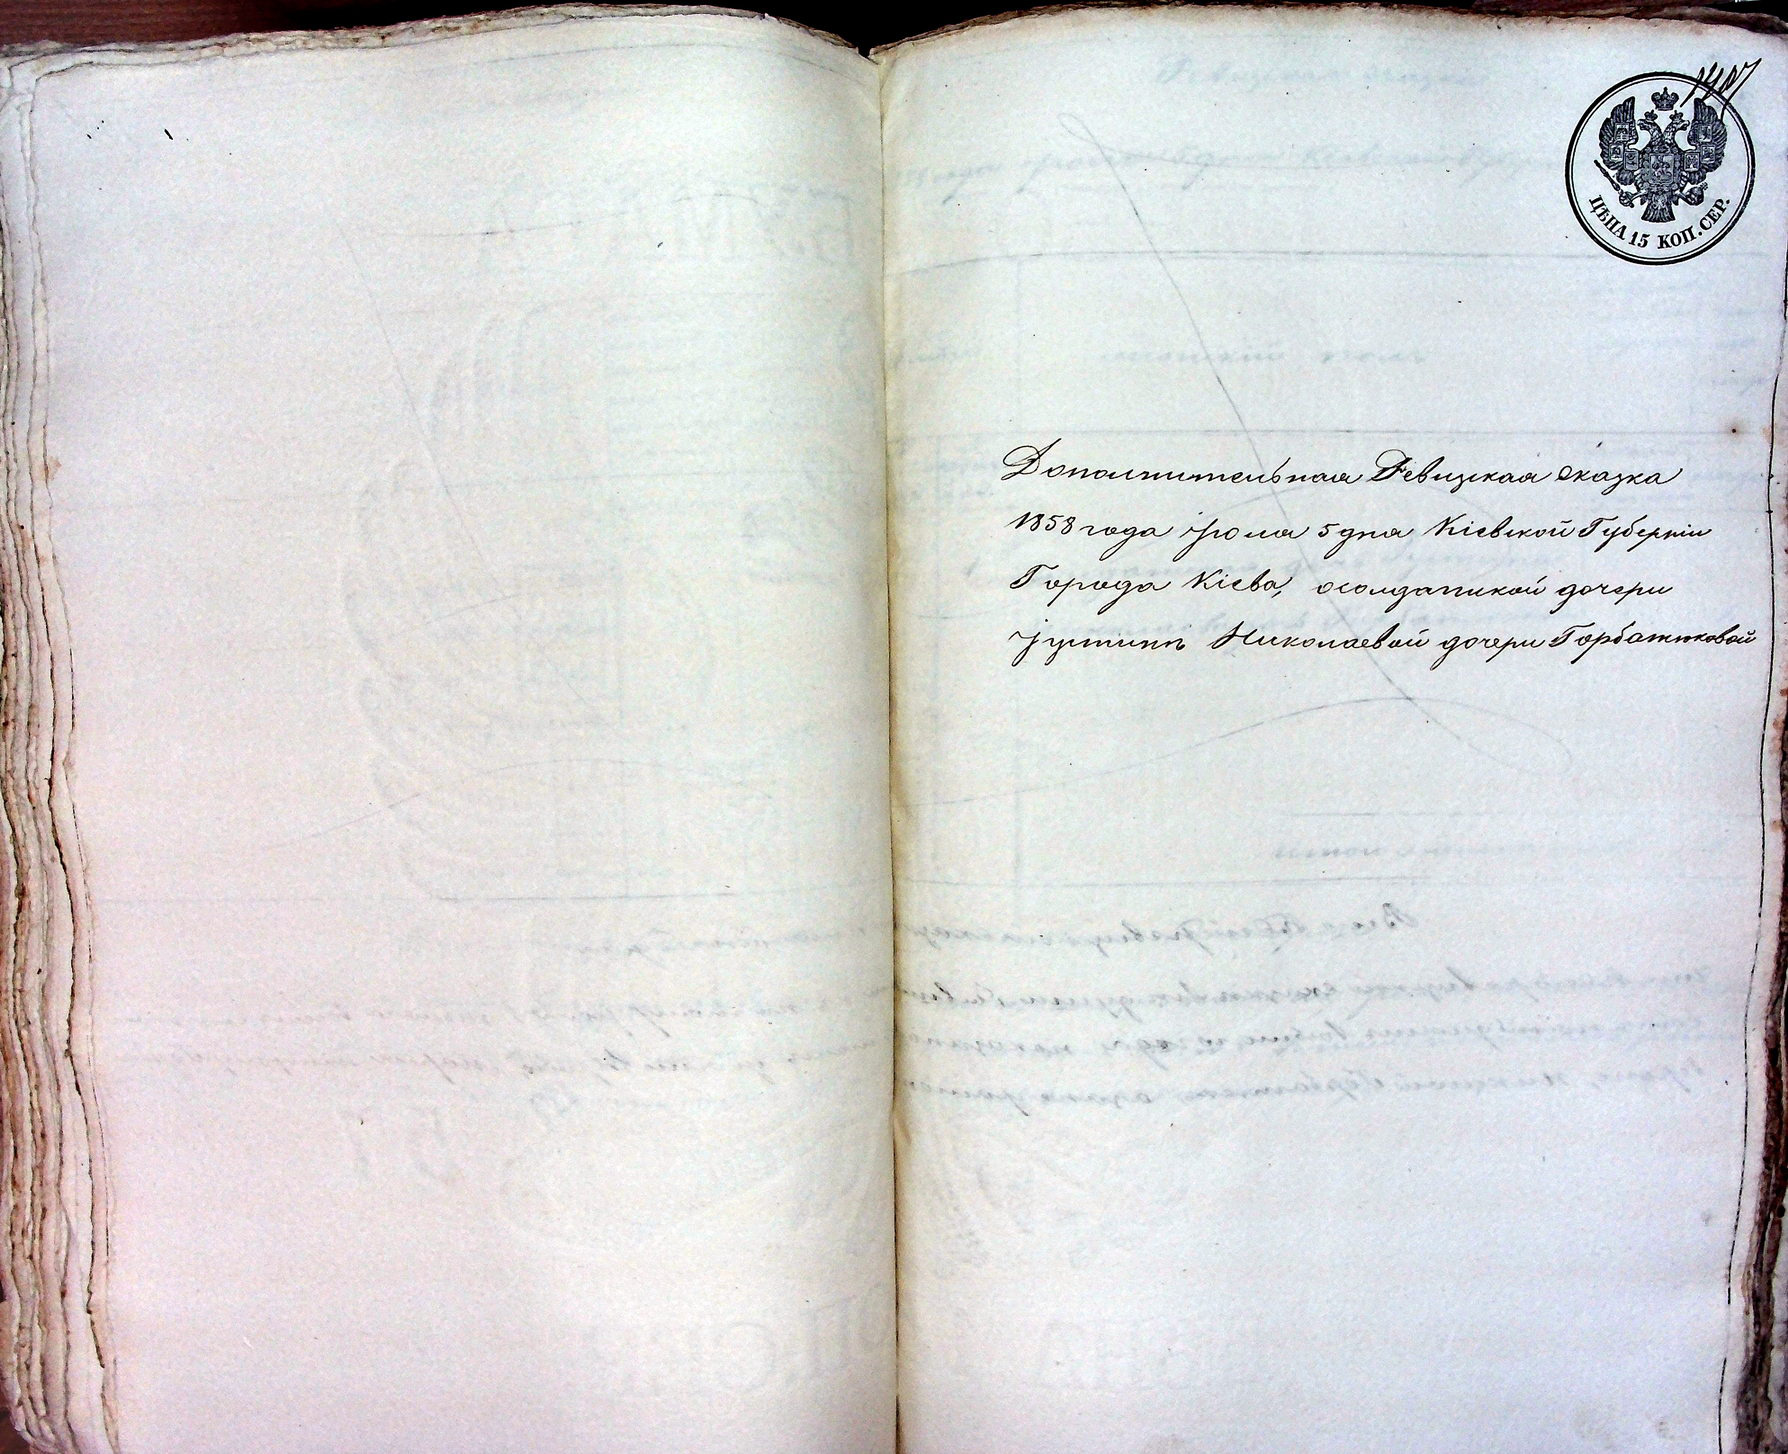 ЦѢНА 15 КОП. СЕР.
Дополнительная Ревизская сказка
1858 года Іюля 5 дня Кіевской Губерніи
Города Кіева, о солдатской дочери
Іустинѣ Николаевой дочери Горбатковой